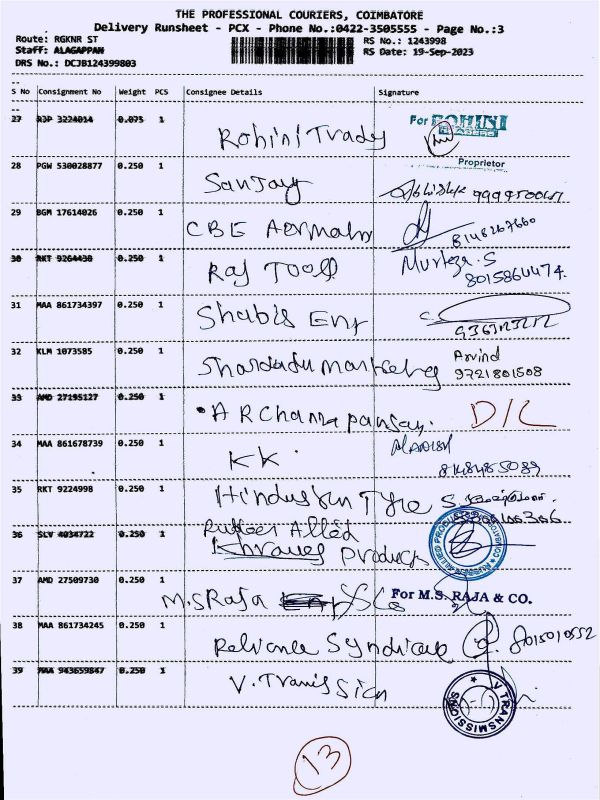 THE PROFESSIONAL COURIERS, COIMBATORE
Delivery Runsheet - PCX - Phone No.:0422-3505555 - Page No.:3
Route: RGKNR ST
RS No.: 1243998
Staff: ALAGAPPAN
RS Date: 19-Sep-2023
DRS No.: DCJB124399803
S No Consignment No Weight PCS Consignee Details Signature
27 RJP 3224014 0.075 1 Rohini For ROHINI
Proprietor
28 PGW 530028877 0.250 1 Sanjay
29 BGM 17614026 0.250 1 CBE 8148267660
30 RKT 9264430 0.250 1 Raj Murteza.S
8015864474.
31 MAA 861734397 0.250 1 Shabis
32 KLM 1073585 0.250 1 marketing Arvind
9721801508
33 AMD 27195127 0.250 1 D/L
34 MAA 861678739 0.250 1 KK.
8148485089
35 RKT 9224998 0.250 1 Hindustan Tyre
36 SLV 4034722 0.250 1 Rubber Allied
Products
37 AMD 27509730 0.250 1 M.S Raja For M.S. RAJA & CO.
38 MAA 861734245 0.250 1 Reliance Syndicate 8015010552
39 MAA 943659847 0.250 1 V. V TRANSMISSION
13